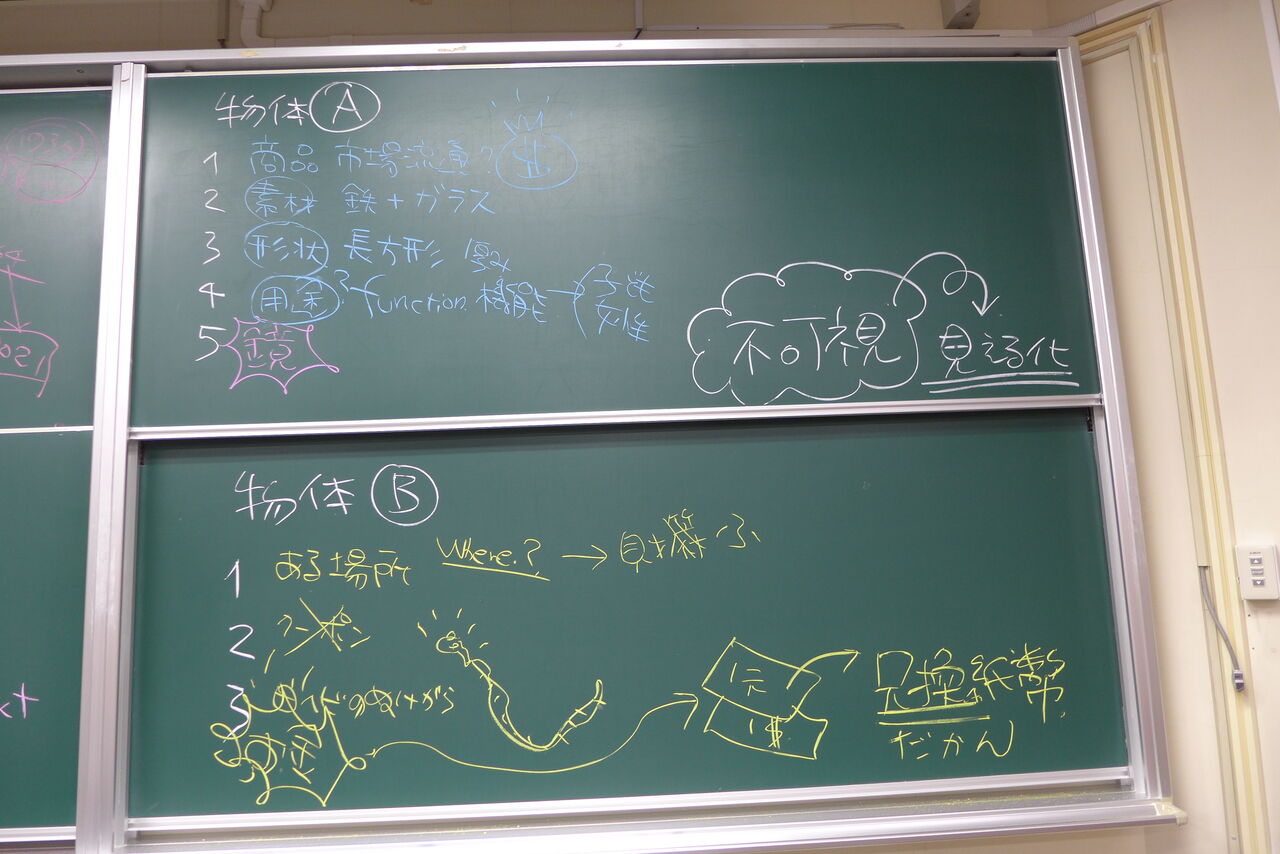 物体 A
1 商品 市場流通? $
2 素材 鉄+ガラス
3 形状 長方形 厚み
4 用途? function 機能 子ども 女性
5 鏡
不可視 見える化
物体 B
1 ある場所 Where? →
2 クーポン
3 のぬけがら
お金
$
兌換紙幣
だかん